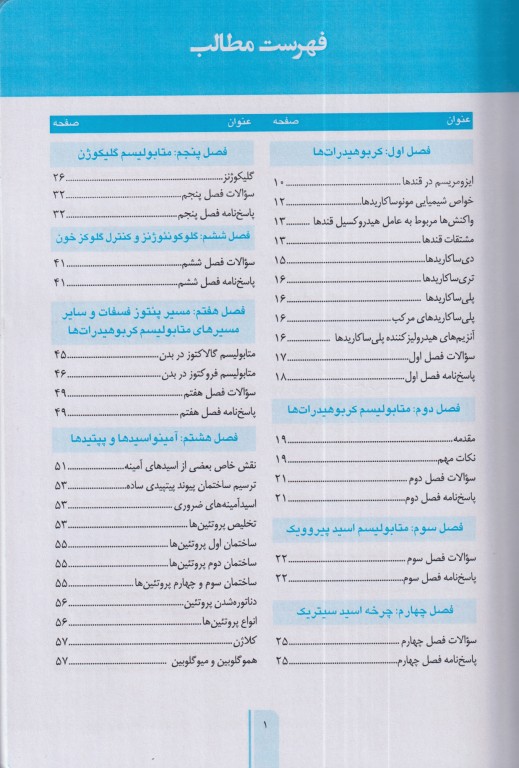 فهرست مطالب
عنوان صفحه
فصل اول: کربوهیدرات‌ها
ایزومریسم در قندها ۱۰
خواص شیمیایی مونوساکاریدها ۱۲
واکنش‌ها مربوط به عامل هیدروکسیل قندها ۱۳
مشتقات قندها ۱۳
دی‌ساکاریدها ۱۵
تری‌ساکاریدها ۱۶
پلی‌ساکاریدها ۱۶
پلی‌ساکاریدهای مرکب ۱۶
آنزیم‌های هیدرولیزکننده پلی‌ساکاریدها ۱۶
سؤالات فصل اول ۱۷
پاسخ‌نامه فصل اول ۱۸
فصل دوم: متابولیسم کربوهیدرات‌ها
مقدمه ۱۹
نکات مهم ۱۹
سؤالات فصل دوم ۲۱
پاسخ‌نامه فصل دوم ۲۱
فصل سوم: متابولیسم اسید پیروویک
سؤالات فصل سوم ۲۲
پاسخ‌نامه فصل سوم ۲۲
فصل چهارم: چرخه اسید سیتریک
سؤالات فصل چهارم ۲۵
پاسخ‌نامه فصل چهارم ۲۵
عنوان صفحه
فصل پنجم: متابولیسم گلیکوژن
گلیکوژنز ۲۶
سؤالات فصل پنجم ۳۲
پاسخ‌نامه فصل پنجم ۳۲
فصل ششم: گلوکونئوژنز و کنترل گلوکز خون
سؤالات فصل ششم ۴۱
پاسخ‌نامه فصل ششم ۴۱
فصل هفتم: مسیر پنتوز فسفات و سایر
مسیرهای متابولیسم کربوهیدرات‌ها
متابولیسم گالاکتوز در بدن ۴۵
متابولیسم فروکتوز در بدن ۴۶
سؤالات فصل هفتم ۴۹
پاسخ‌نامه فصل هفتم ۴۹
فصل هشتم: آمینواسیدها و پپتیدها
نقش خاص بعضی از اسیدهای آمینه ۵۱
ترسیم ساختمان پیوند پپتیدی ساده ۵۳
اسیدآمینه‌های ضروری ۵۳
تخلیص پروتئین‌ها ۵۳
ساختمان اول پروتئین‌ها ۵۵
ساختمان دوم پروتئین‌ها ۵۵
ساختمان سوم و چهارم پروتئین‌ها ۵۵
دناتوره‌شدن پروتئین ۵۶
انواع پروتئین‌ها ۵۶
کلاژن ۵۷
هموگلوبین و میوگلوبین ۵۷
۱